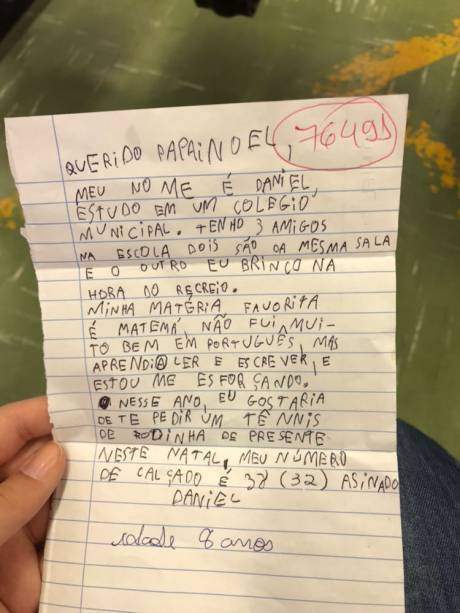 QUERIDO PAPAI NOEL, 76491
MEU NOME É DANIEL,
ESTUDO EM UM COLEGIO
MUNICIPAL. TENHO 3 AMIGOS
NA ESCOLA DOIS SÃO DA MESMA SALA
E O OUTRO EU BRINCO NA
HORA DO RECREIO.
MINHA MATÉRIA FAVORITA
É MATEMÁ, NÃO FUI MUI-
TO BEM EM PORTUGUÊS, MAS
APRENDI A LER E ESCREVER, E
ESTOU ME ESFORÇANDO.
NESSE ANO, EU GOSTARIA
DE TE PEDIR UM TÊNNIS
DE RODINHA DE PRESENTE
NESTE NATAL, MEU NÚMERO
DE CALÇADO É 32 (32) ASINADO
DANIEL
idade 8 anos